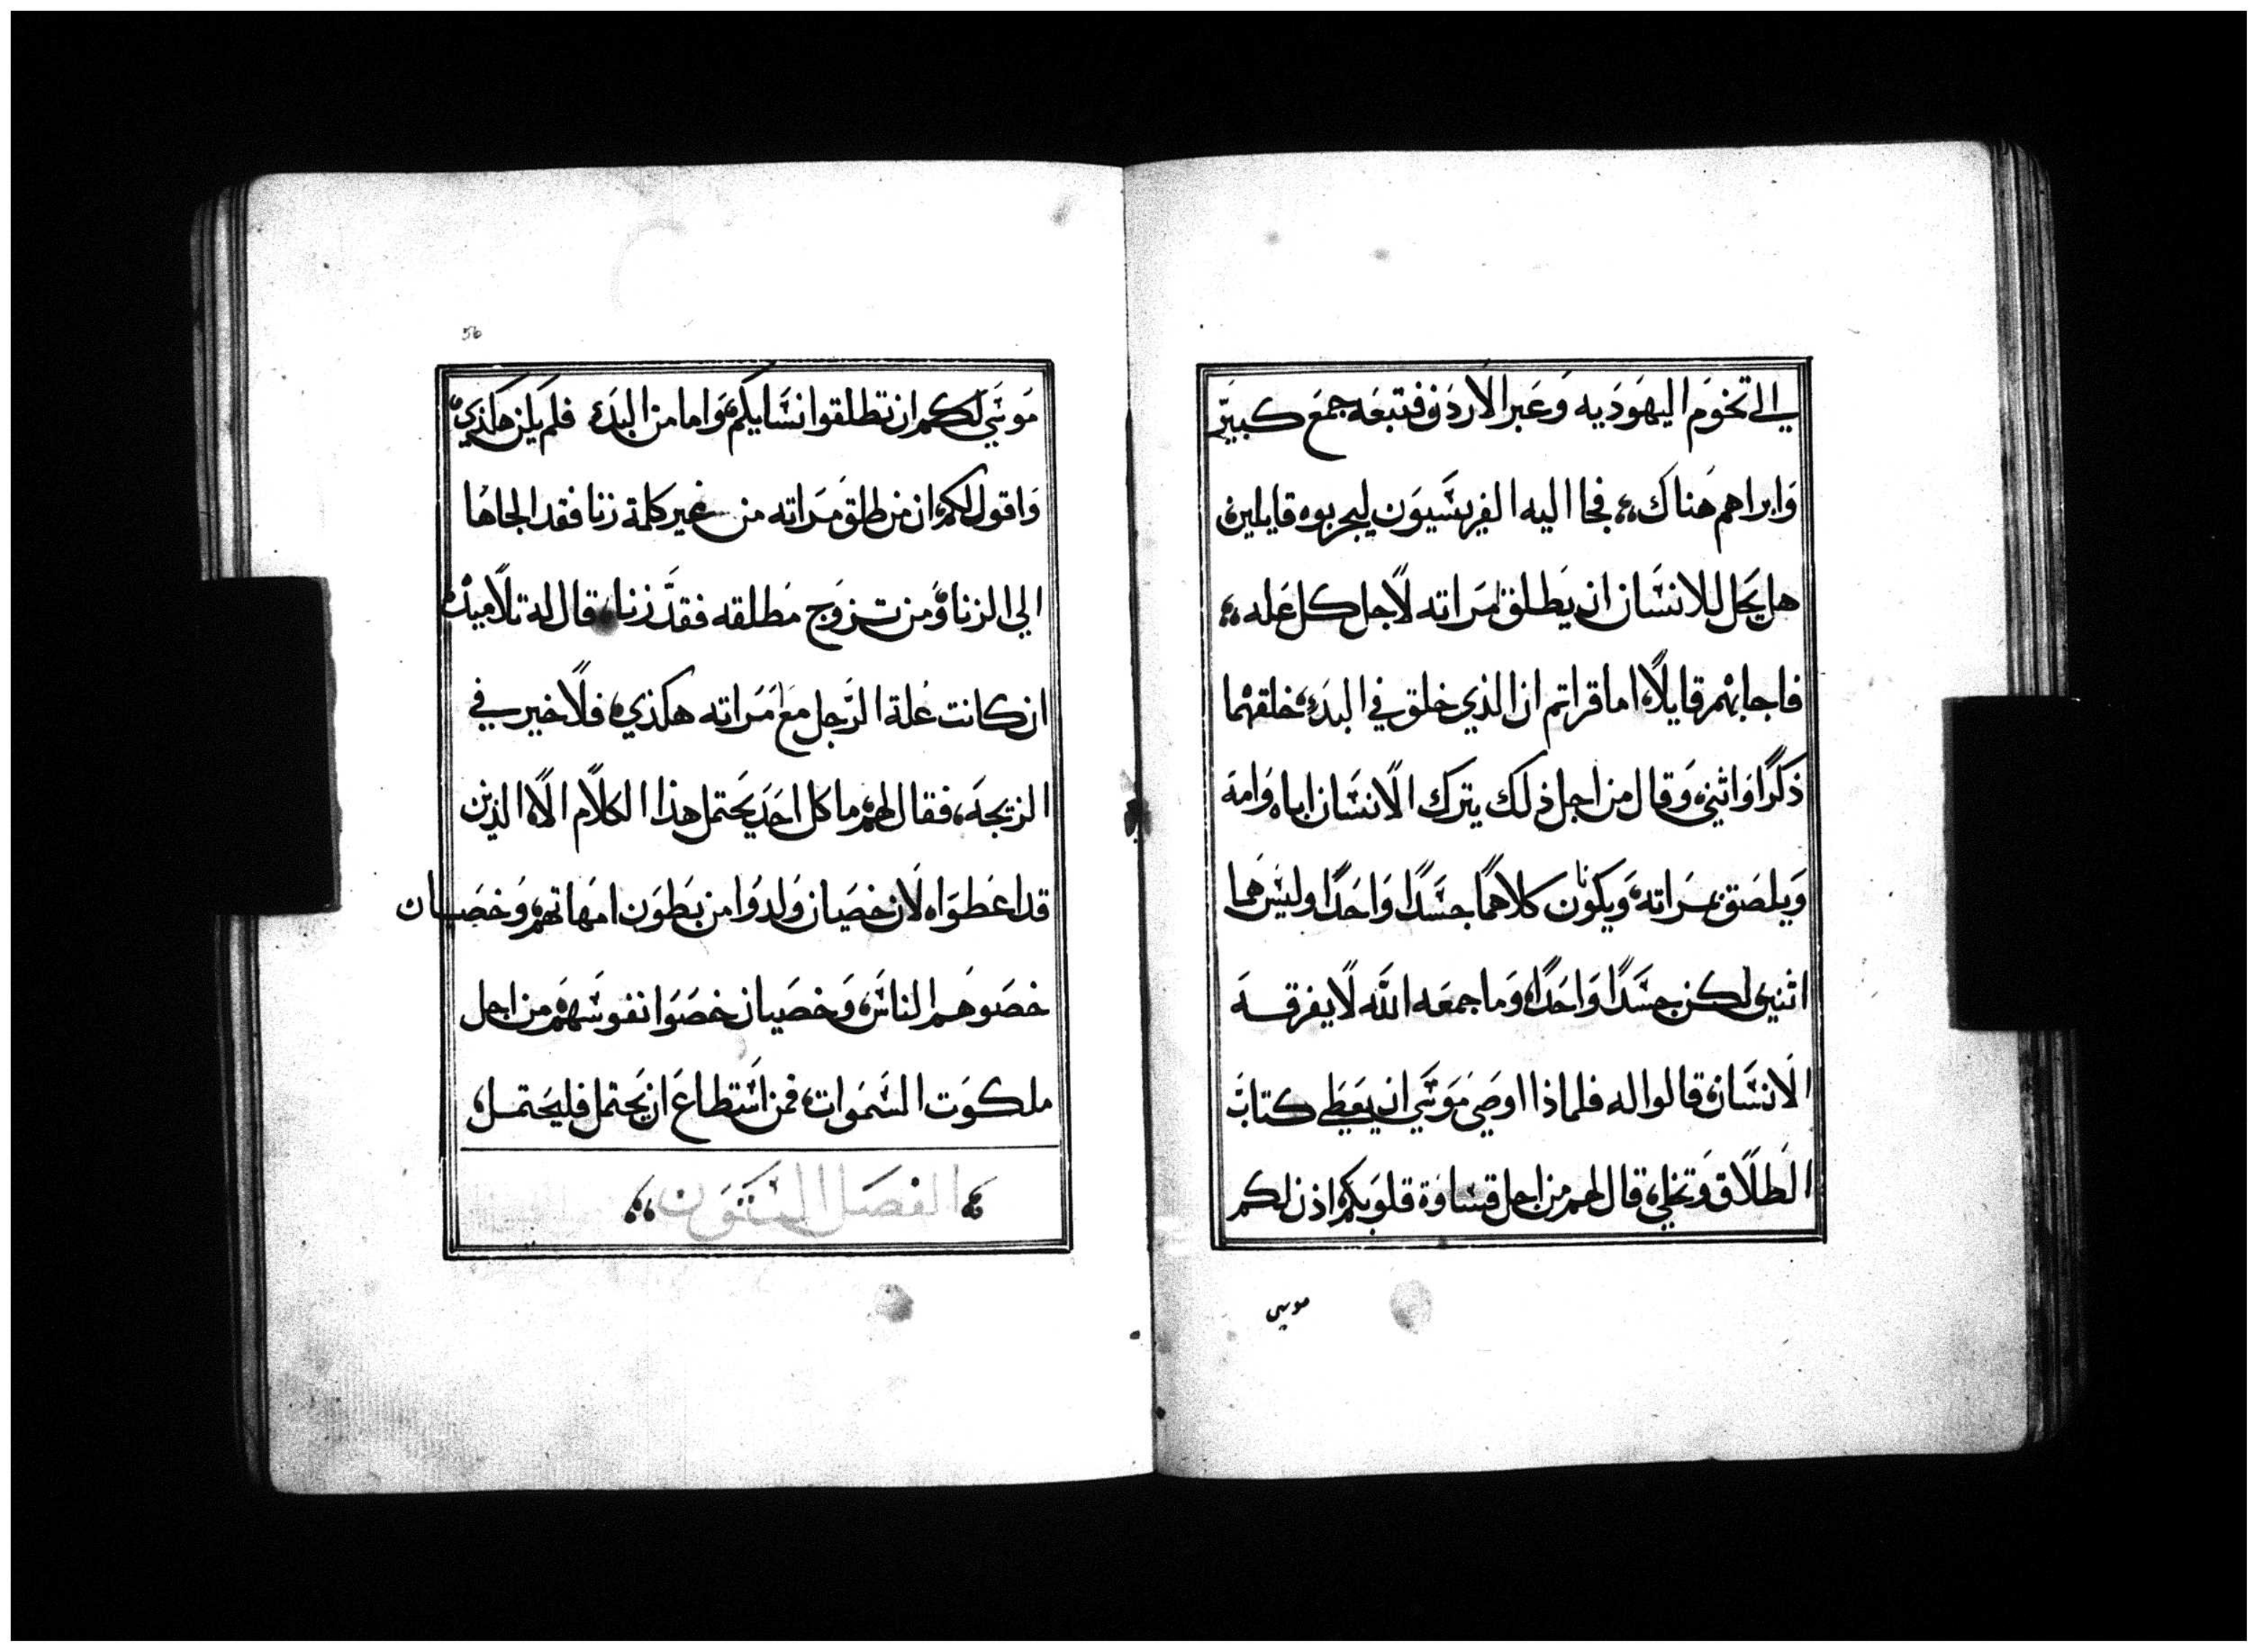 الي تخوم اليهوديه وعبر الاردن فتبعه جمع كبير
وابراهم هناك، فجا اليه الفريسيون ليجربوه قايلين
هل يحل للانسان ان يطلق امراته لاجل كل عله،
فاجابهم قايلاً، اما قراتم ان الذي خلق في البدء، خلقهما
ذكرًا وانثي، وقال من اجل ذلك يترك الانسان اباه وامه
ويلصق بمراته، ويكونان كلاهما جسدًا واحدًا وليس هما
اثنين لكن جسدًا واحدًا، وما جمعه الله لا يفرقه
الانسان، قالوا له فلماذا اوصي موسي ان يعطي كتاب
الطلاق وتخلي، قال لهم من اجل قساوة قلوبكم اذن لكم
موسي
56
موسي لكم ان تطلقوا نسايكم، واما من البدء فلم يكن هكذي،
واقول لكم، ان من طلق مراته من غير كلمة زنا فقد الجاها
الي الزنا، ومن تزوج مطلقه فقد زنا، قال له تلاميذه
ان كانت علة الرجل مع امراته هكذي، فلا خير في
الزيجه، فقال لهم، ما كل احد يحتمل هذا الكلام الا الذين
قد اعطوا، لان خصيان ولدوا من بطون امهاتهم، وخصيان
خصوهم الناس، وخصيان خصوا نفوسهم من اجل
ملكوت السموات، فمن استطاع ان يحتمل فليحتمل،
الفصل الستون